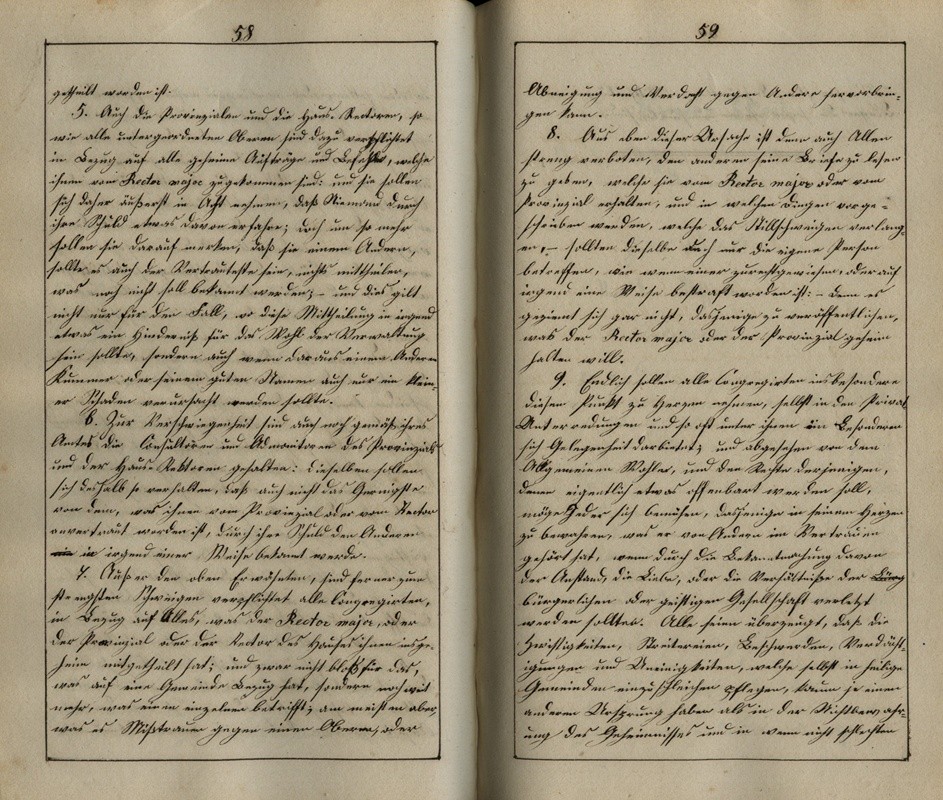 58
getheilt worden ist.
5. Auch die Provinzialen und die Haus-Rektoren, so
wie alle untergeordneten Oberen sind dazu verpflichtet
in Bezug auf alle geheime Aufträge und Befehle, welche
ihnen vom Rector major zugekommen sind: und sie sollen
sich daher äußerst in Acht nehmen, daß Niemand durch
ihre Schuld etwas davon erfahre; doch um so mehr
sollen sie darauf merken, daß sie einem Andern,
sollte es auch der Vertrauteste sein, nichts mittheilen,
was noch nicht soll bekannt werden; – und dies gilt
nicht nur für den Fall, wo diese Mittheilung in irgend
etwas ein Hinderniß für das Wohl der Verwaltung
sein sollte, sondern auch wenn daraus einem Andern
Kummer oder seinem guten Namen auch nur ein klein-
er Schaden verursacht werden sollte.
6. Zur Verschwiegenheit sind auch noch gemäß ihres
Amtes die Consultoren und Admonitoren des Provinzials
und der Haus-Rektoren gehalten: dieselben sollen
sich deshalb so verhalten, daß auch nicht das Geringste
von dem, was ihnen vom Provinzial oder vom Rector
anvertraut worden ist, durch ihre Schuld den Anderen
in irgend einer Weise bekannt werde.
7. Außer den oben Erwähnten, sind ferner zum
strengsten Schweigen verpflichtet alle Congregirten,
in Bezug auf Alles, was der Rector major, oder
der Provinzial oder der Rector des Hauses ihnen insge-
heim mitgetheilt hat; und zwar nicht bloß für das,
was auf eine Gemeinde Bezug hat, sondern noch viel
mehr, was einen einzelnen betrifft; am meisten aber
was ein Mißtrauen gegen einen Oberen, oder
59
Abneigung und Verdacht gegen Andere hervorbrin-
gen kann.
8. Aus eben dieser Ursache ist denn auch Allen
streng verboten, den anderen seine Briefe zu lesen
zu geben, welche sie vom Rector major oder vom
Provinzial erhalten, und in welchen Dingen vorge-
schrieben werden, welche das Stillschweigen verlang-
en, – sollten dieselbe auch nur die eigene Person
betreffen, wie wenn einer zurechtgewiesen, oder auf
irgend eine Weise bestraft worden ist: – denn es
geziemt sich gar nicht, dasjenige zu veröffentlichen,
was der Rector major oder der Provinzial geheim
halten will.
9. Endlich sollen alle Congregirten insbesondere
diesen Punkt zu Herzen nehmen, selbst in den Privat
Unterredungen und so oft unter ihnen ein Besonderes
sich Gelegenheit darbietet; und abgesehen von dem
Allgemeinen Wohle, und dem Rechte derjenigen,
denen eigentlich etwas offenbart werden soll,
möge Jeder sich bemühen, dasjenige in seinem Herzen
zu bewahren, was er von Andern im Vertrauen
gehört hat, wenn durch die Bekanntmachung davon
der Anstand, die Liebe, oder die Verhältniße der
bürgerlichen oder geistigen Gesellschaft verletzt
werden sollten. Alle seien überzeugt, daß die
Zwistigkeiten, Streitereien, Beschwerden, Verdächt-
igungen und Uneinigkeiten, welche selbst in heilige
Gemeinden einzuschleichen pflegen, kaum je einen
anderen Ursprung haben als in der Nichtbewahr-
ung des Geheimnisses und in wenn nicht schlechten